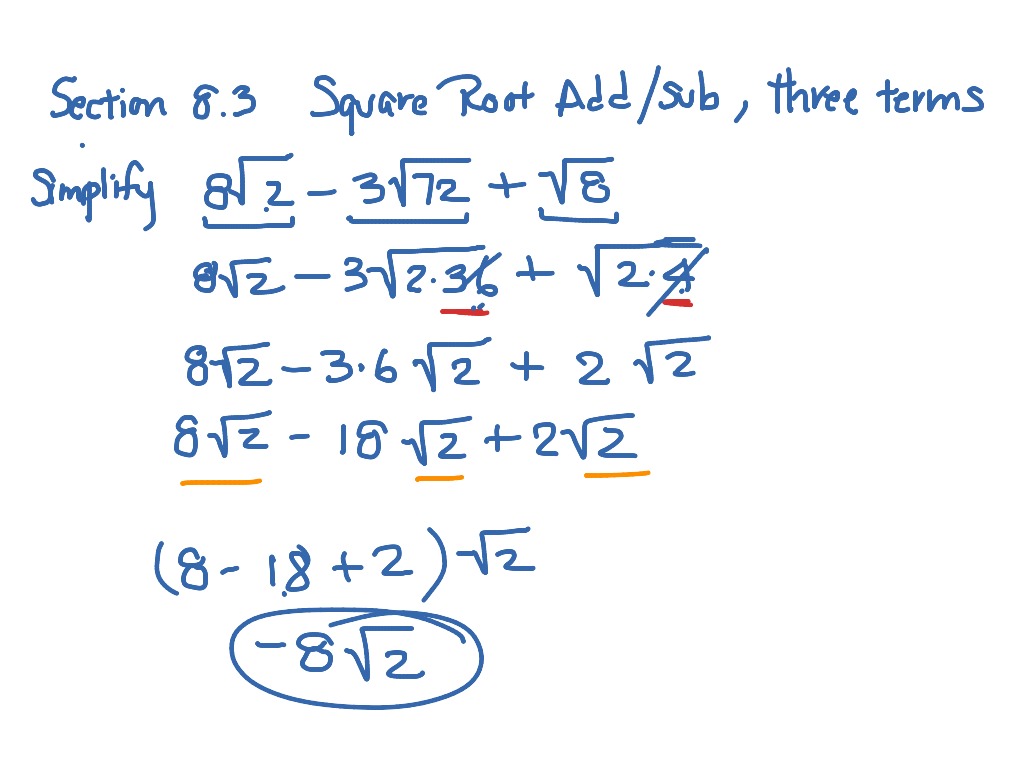 Section 8.3 Square Root Add/Sub, three terms
Simplify 8√2 − 3√72 + √8
8√2 − 3√2·36 + √2·4
8√2 − 3·6 √2 + 2 √2
8√2 − 18 √2 + 2√2
(8 − 18 + 2) √2
−8√2